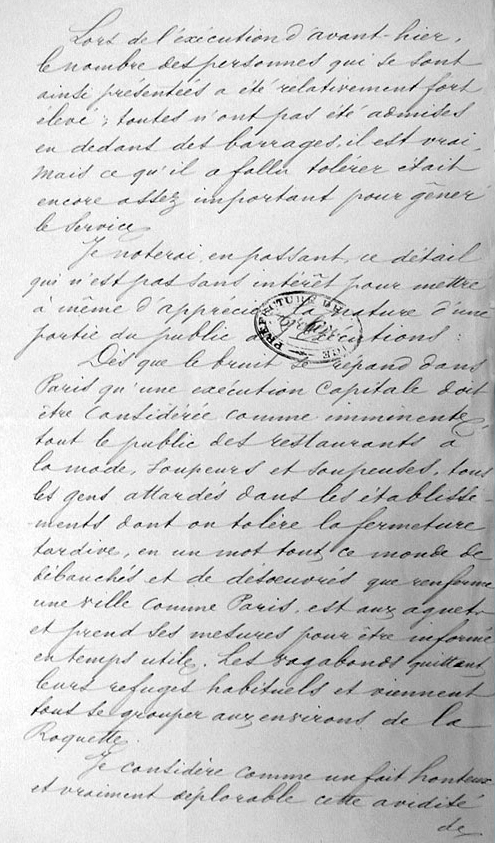 Lors de l'exécution d'avant-hier,
le nombre des personnes qui se sont
ainsi présentées a été relativement fort
élevé ; toutes n'ont pas été admises
en dedans des barrages, il est vrai,
mais ce qu'il a fallu tolérer était
encore assez important pour gêner
le service.
Je noterai, en passant, ce détail
qui n'est pas sans intérêt pour mettre
à même d'apprécier la nature d'une
partie du public des exécutions :
Dès que le bruit se répand dans
Paris qu'une exécution capitale doit
être considérée comme imminente,
tout le public des restaurants à
la mode, soupeurs et soupeuses, tous
les gens attardés dans les établisse-
ments dont on tolère la fermeture
tardive, en un mot tout ce monde de
débauchés et de désoeuvrés que renferme
une ville comme Paris, est aux aguets
et prend ses mesures pour être informé
en temps utile. Les vagabonds quittant
leurs refuges habituels et viennent
tous se grouper aux environs de la
Roquette.
Je considère comme un fait honteux
et vraiment déplorable cette avidité
de
PRÉFECTURE DE POLICE